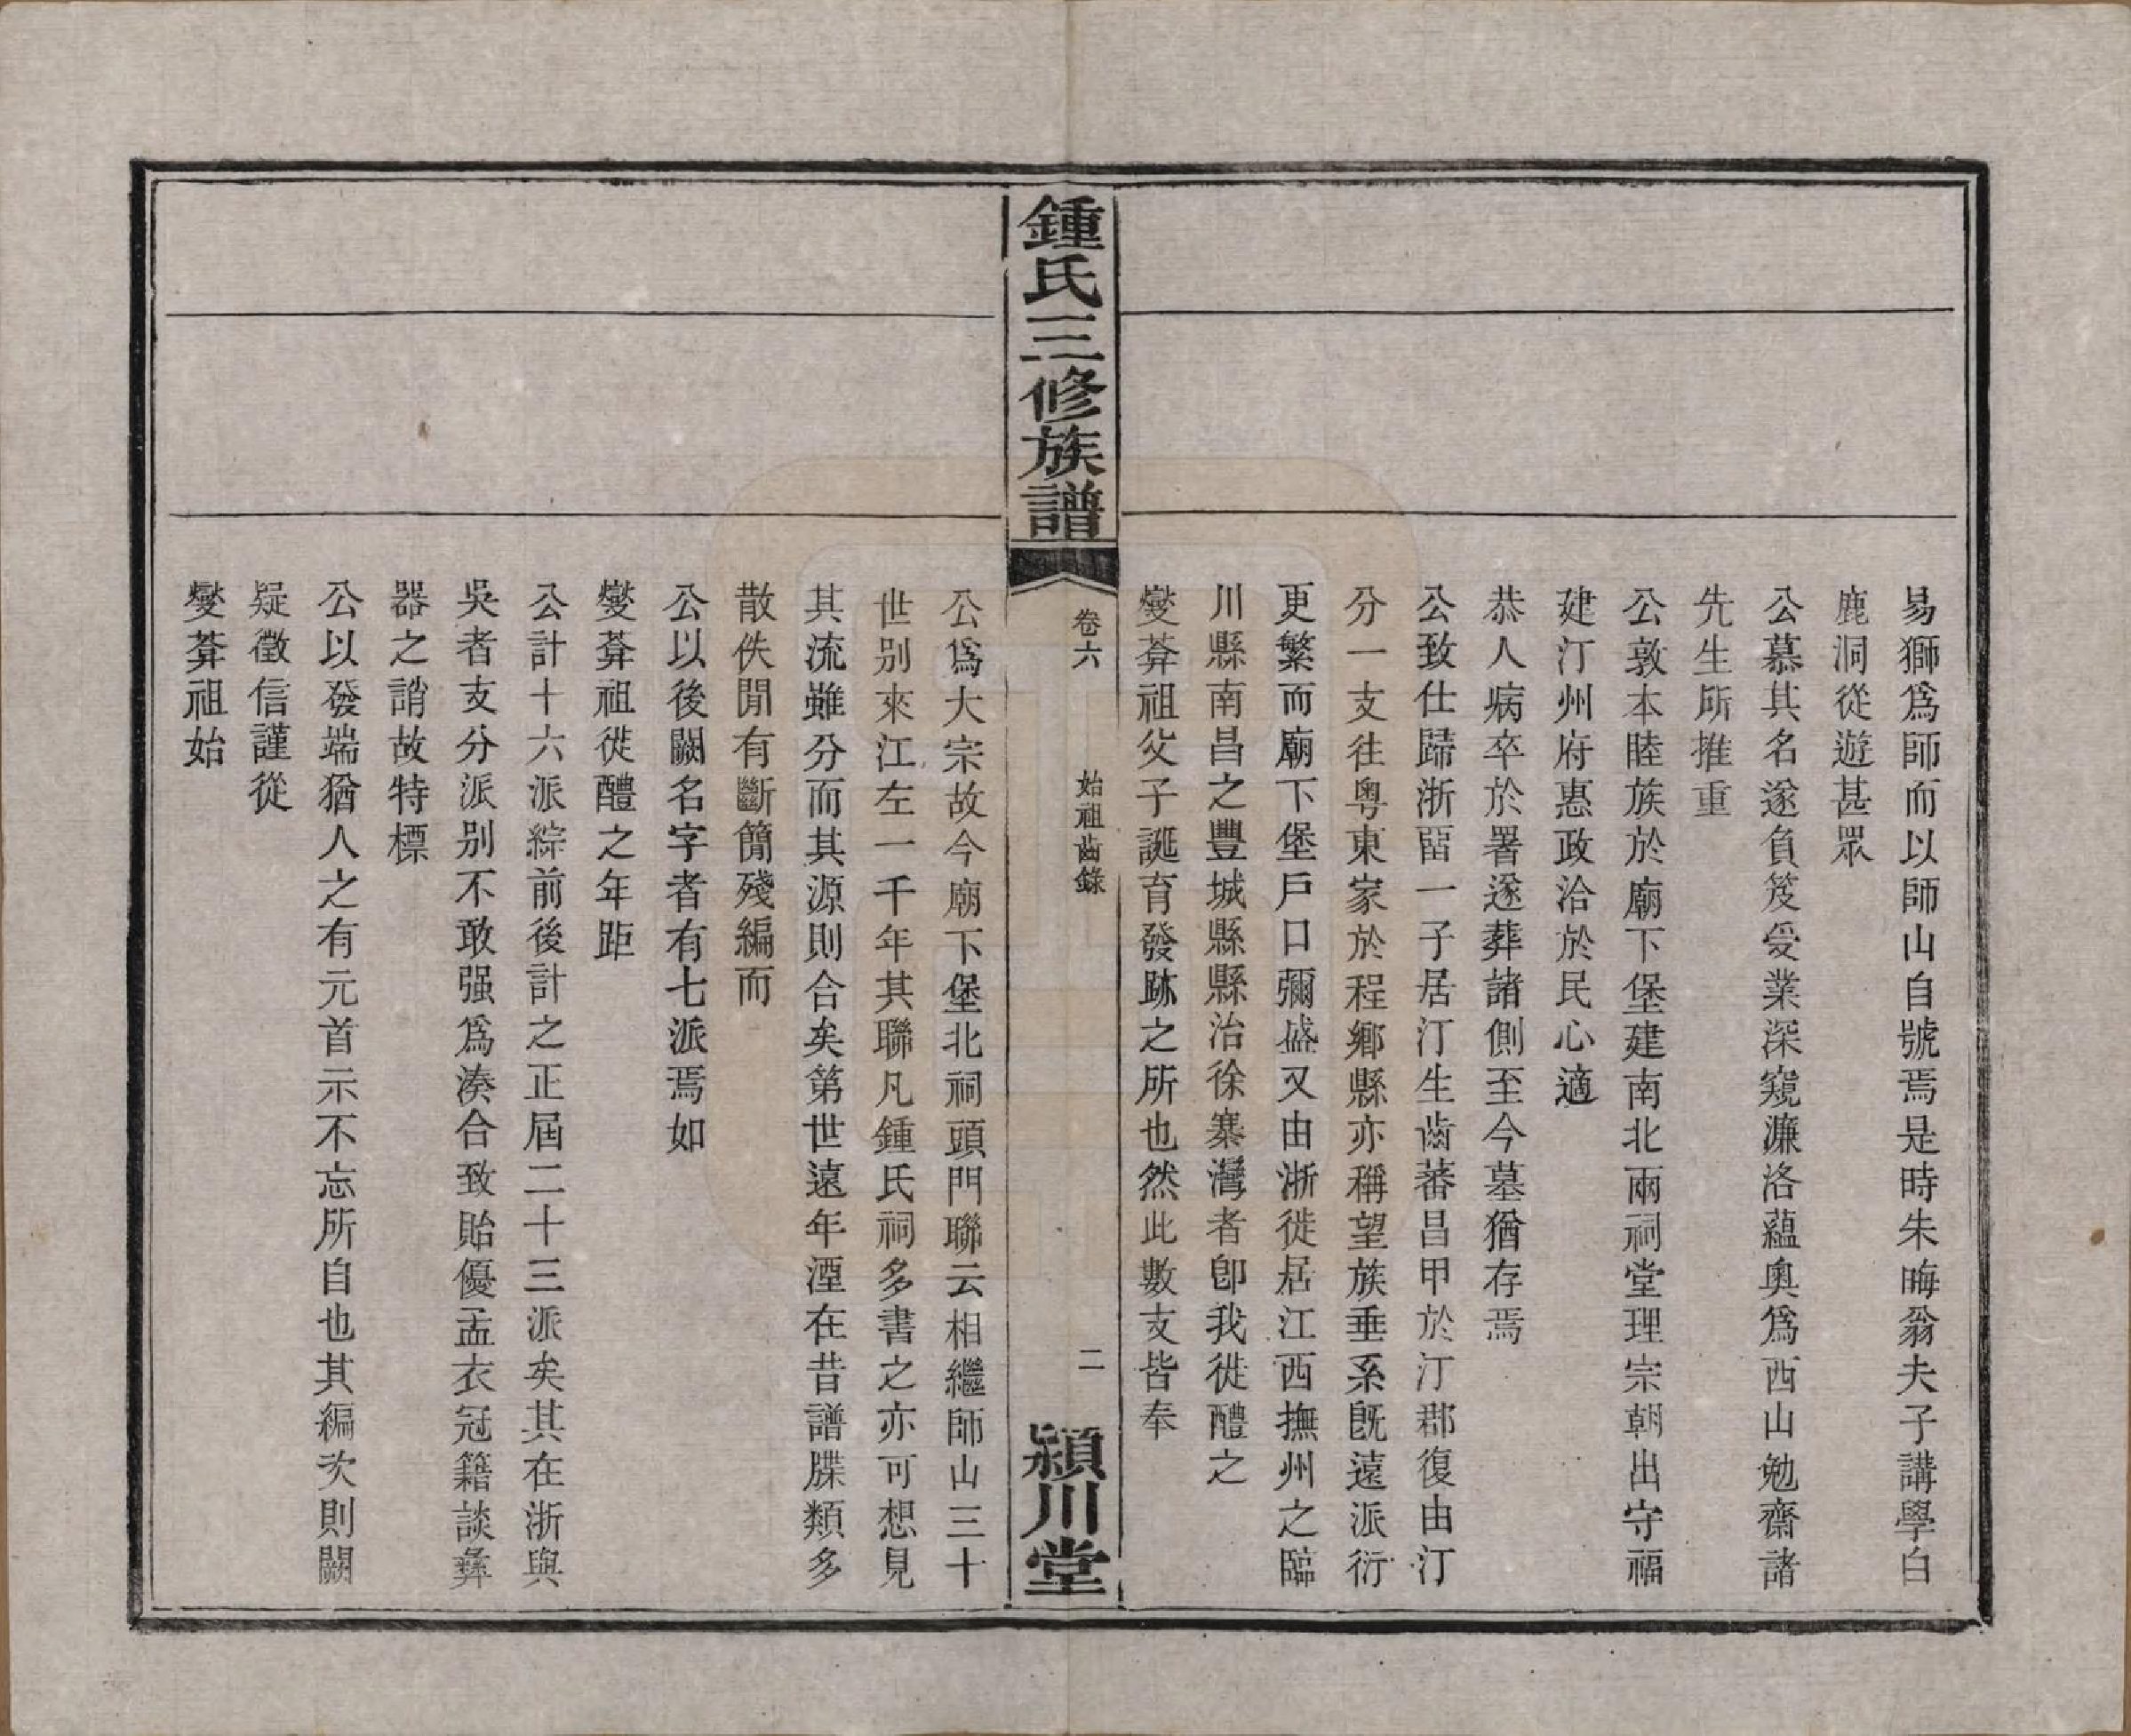 易獅爲師而以師山自號焉是時朱晦翁夫子講學白
鹿洞從遊甚眾
公慕其名遂負笈受業深窺濂洛蘊奧爲西山勉齋諸
先生所推重
公敦本睦族於廟下堡建南北兩祠堂理宗朝出守福
建汀州府惠政洽於民心適
恭人病卒於署遂葬諸側至今墓猶存焉
公致仕歸浙留一子居汀生齒蕃昌甲於汀郡復由汀
分一支往粵東家於程鄉縣亦稱望族垂系旣遠派衍
更繁而廟下堡戶口彌盛又由浙徙居江西撫州之臨
川縣南昌之豐城縣縣治徐寨灣者卽我徙醴之
燮葊祖父子誕育發跡之所也然此數支皆奉
鍾氏三修族譜
卷六
始祖齒錄
二
潁川堂
公爲大宗故今廟下堡北祠頭門聯云相繼師山三十
世別來江左一千年其聯凡鍾氏祠多書之亦可想見
其流雖分而其源則合矣第世遠年湮在昔譜牒類多
散佚閒有斷簡殘編而
公以後闕名字者有七派焉如
燮葊祖徙醴之年距
公計十六派綜前後計之正屆二十三派矣其在浙與
吳者支分派別不敢强爲湊合致貽優孟衣冠籍談彝
器之誚故特標
公以發端猶人之有元首示不忘所自也其編次則闕
疑徵信謹從
燮葊祖始